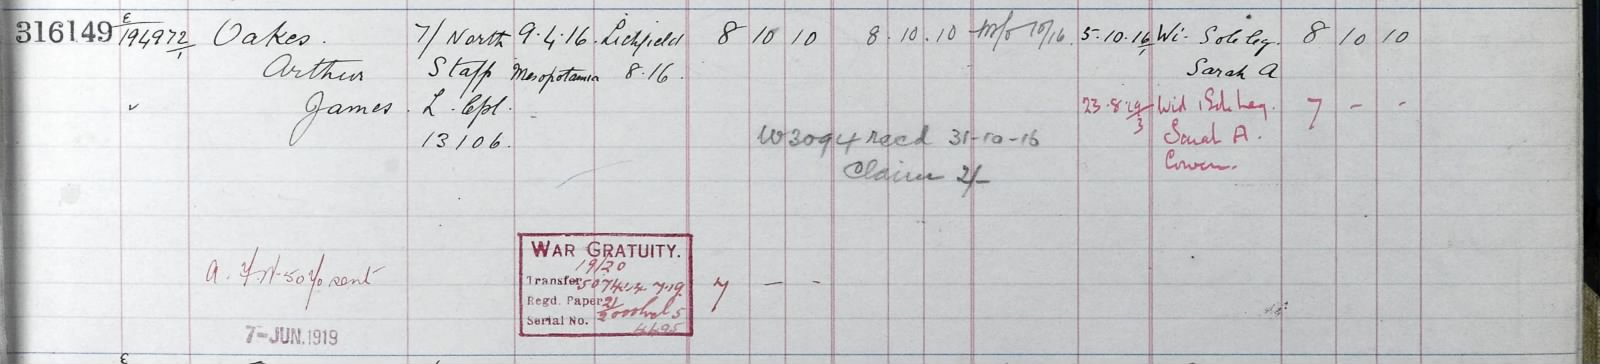 316149 E 194972/1 Oakes. 7/ North 9.4.16. Lichfield 8 10 10 8.10.10 10/16 5.10.16 Wi- Sole leg. 8 10 10
Arthur Staff Mesopotamia 8.16. Sarah A
James. L. Cpl. 23.8.19 Wid Sole leg. 7 - -
13106. W3094 recd 31-10-16 Sarah A.
Claim 2/- Cowen.
WAR GRATUITY.
19/20
Transfer
Regd. Paper 21/
Serial No.
7 - -
a. sent
7-JUN.1919
E